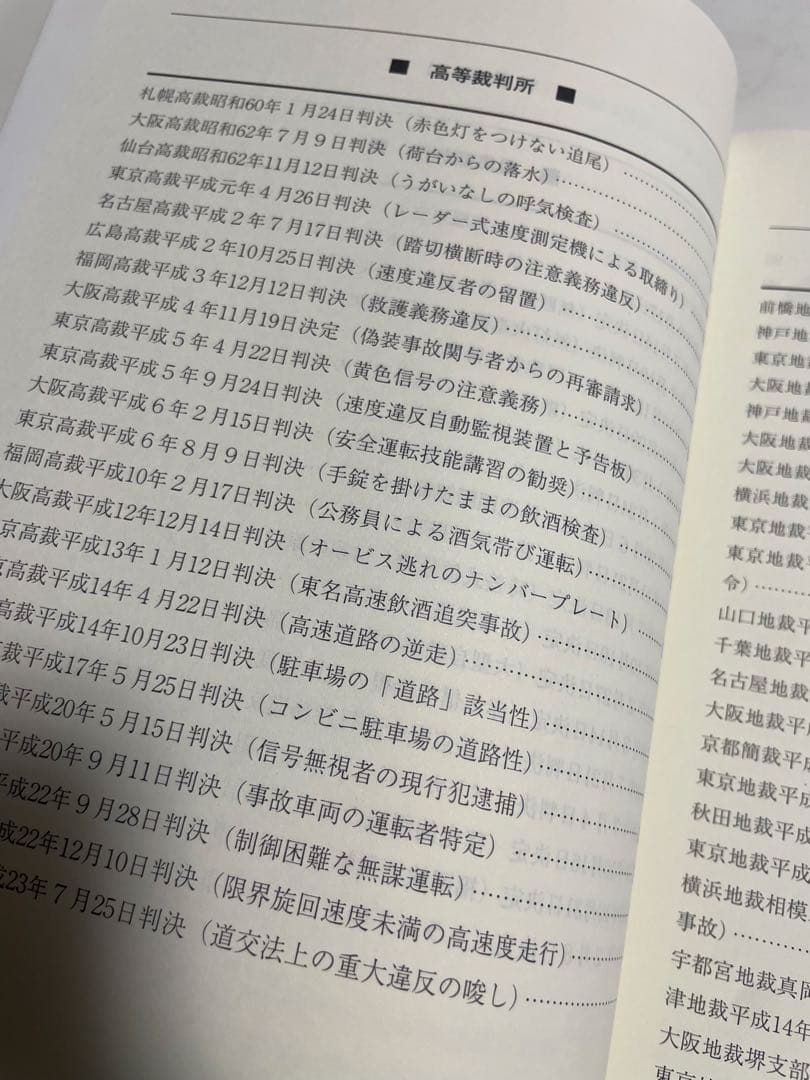 ■ 高等裁判所 ■
札幌高裁昭和60年1月24日判決（赤色灯をつけない追尾）……
大阪高裁昭和62年7月9日判決（荷台からの落水）……
仙台高裁昭和62年11月12日判決（うがいなしの呼気検査）……
東京高裁平成元年4月26日判決（レーダー式速度測定機による取締り）
名古屋高裁平成2年7月17日判決（踏切横断時の注意義務違反）……
広島高裁平成2年10月25日判決（速度違反者の留置）……
福岡高裁平成3年12月12日判決（救護義務違反）……
大阪高裁平成4年11月19日決定（偽装事故関与者からの再審請求）……
東京高裁平成5年4月22日判決（黄色信号の注意義務）……
東京高裁平成5年9月24日判決（速度違反自動監視装置と予告板）……
大阪高裁平成6年2月15日判決（安全運転技能講習の勧奨）……
東京高裁平成6年8月9日判決（手錠を掛けたままの飲酒検査）……
福岡高裁平成10年2月17日判決（公務員による酒気帯び運転）……
大阪高裁平成12年12月14日判決（オービス逃れのナンバープレート）……
京高裁平成13年1月12日判決（東名高速飲酒追突事故）……
高裁平成14年4月22日判決（高速道路の逆走）……
高裁平成14年10月23日判決（駐車場の「道路」該当性）……
裁平成17年5月25日判決（コンビニ駐車場の道路性）……
裁平成20年5月15日判決（信号無視者の現行犯逮捕）……
平成20年9月11日判決（事故車両の運転者特定）……
平成22年9月28日判決（制御困難な無謀運転）……
成22年12月10日判決（限界旋回速度未満の高速度走行）……
23年7月25日判決（道交法上の重大違反の唆し）……
前橋地
神戸地
東京地
大阪地裁
神戸地裁
大阪地裁
大阪地裁
横浜地裁
東京地裁平
東京地裁平
令）……
山口地裁平
千葉地裁平
名古屋地裁
大阪地裁平成
京都簡裁平成
東京地裁平成
秋田地裁平成
東京地裁平成
横浜地裁相模
事故）……
宇都宮地裁真岡
津地裁平成14年
大阪地裁堺支部